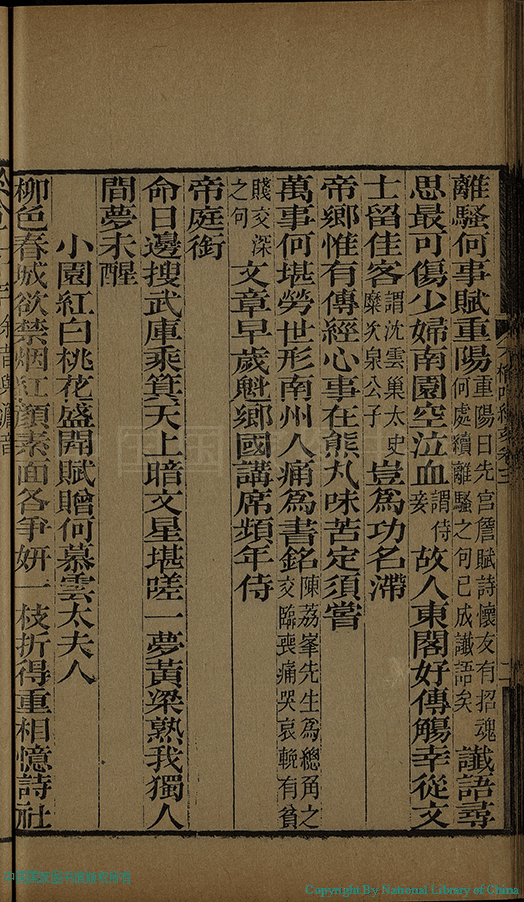 離騷何事賦重陽重陽日先宫詹賦詩懷友有招魂何處續離騷之句已成讖語矣讖語尋
思最可傷少婦南園空泣血謂侍妾故人東閣好傳觴幸從文
士留住客謂沈雲巢太史糜次泉公子豈爲功名滯
帝鄉惟有傳經心事在熊丸味苦定須嘗
萬事何堪勞世形南州人痛爲書銘陳荔峯先生爲總角之交臨喪痛哭哀輓有貧
賤交深之句文章早歲魁鄉國講席頻年侍
帝庭銜
命日邊搜武庫乘箕天上暗文星堪嗟一夢黃粱熟我獨人
間夢未醒
小園紅白桃花盛開賦贈何慕雲太夫人
柳色春城欲禁烟紅顏素面各爭妍一枝折得重相憶詩社
Copyright By National Library of China